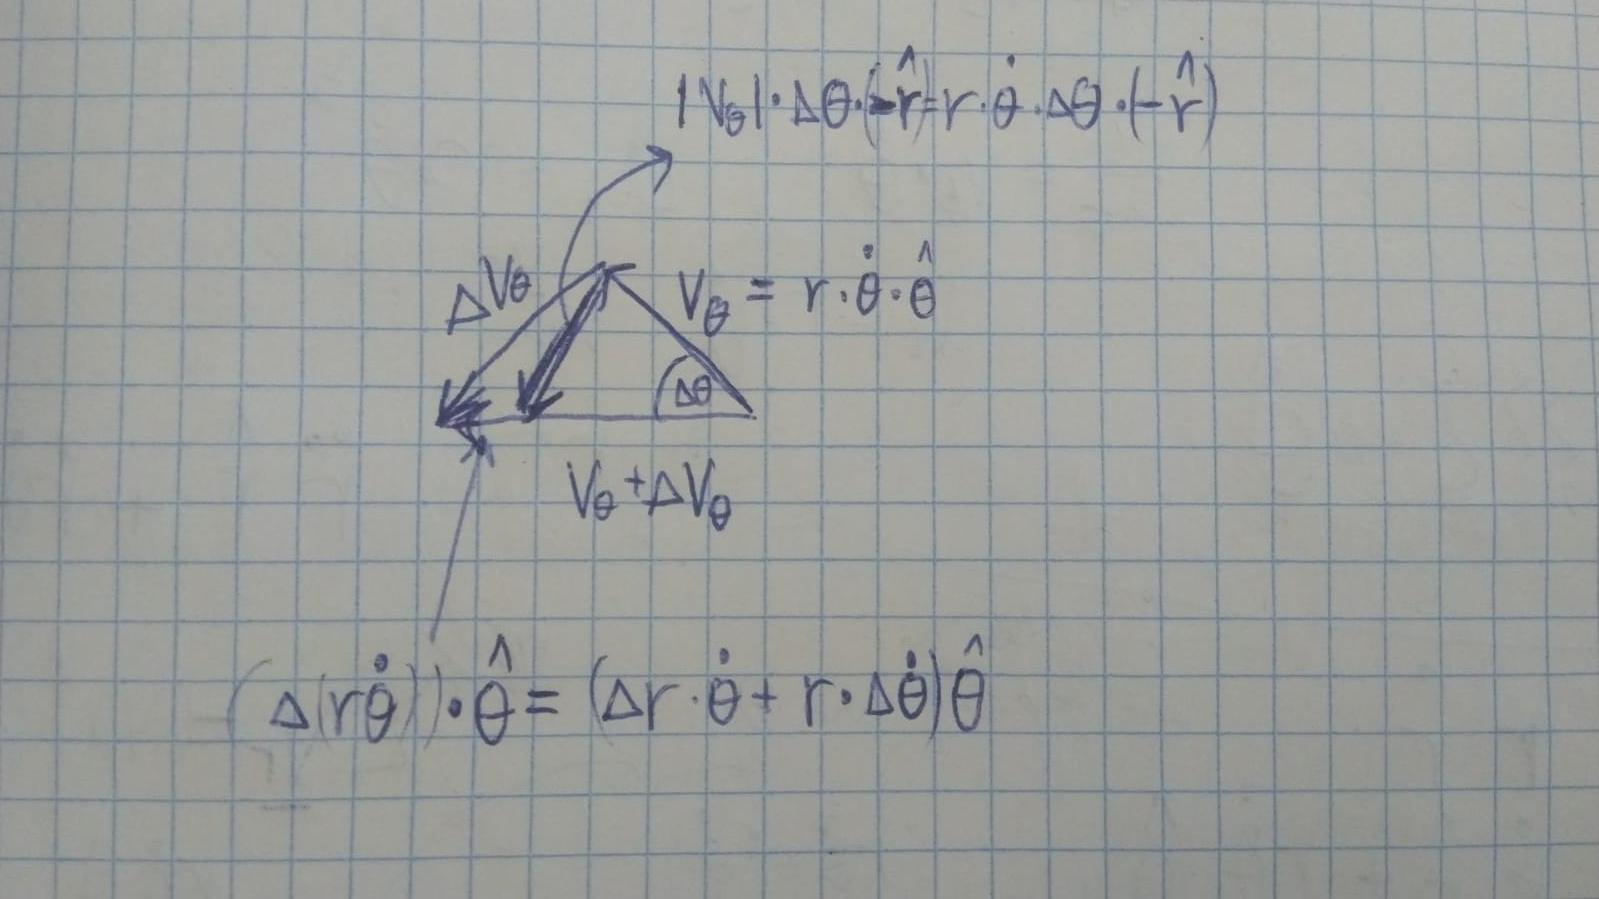 |V_θ|·Δθ·(-r̂)=r·θ̇·Δθ·(-r̂)
ΔV_θ
V_θ = r·θ̇·θ̂
Δθ
V_θ+ΔV_θ
(Δ(rθ̇))·θ̂ = (Δr·θ̇ + r·Δθ̇)θ̂